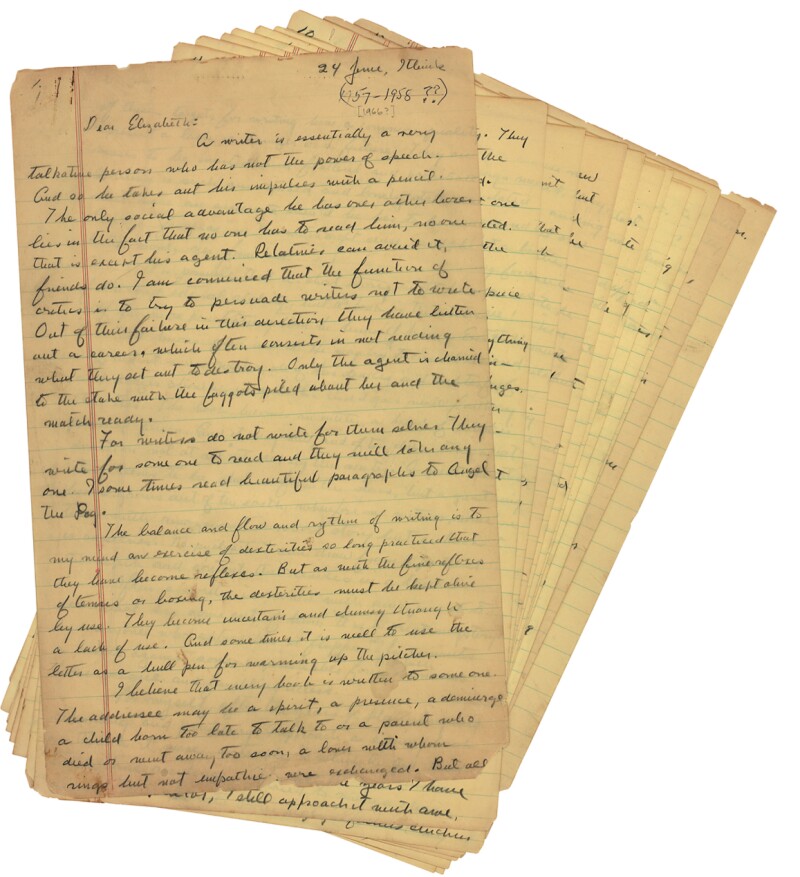 24 June, I think
(1957-1958 ??)
[1966?]
Dear Elizabeth:
A writer is essentially a very
talkative person who has not the power of speech.
And so he takes out his impulses with a pencil.
The only social advantage he has over other bores
lies in the fact that no one has to read him, no one
that is except his agent. Relatives can avoid it,
friends do. I am convinced that the function of
critics is to try to persuade writers not to write
Out of their failure in this direction they have
out a career, which often consists in not reading
what they set out to destroy. Only the agent is chained
to the stake with the faggots piled about her and the
match ready.
For writers do not write for them selves They
write for some one to read and they will take any
one. I some times read beautiful paragraphs to Angel
the Dog.
The balance and flow and rythm of writing is to
my mind an exercise of dexterities so long practiced that
they have become reflexes. But as with the fine reflexes
of tennis or boxing, the dexterities must be kept alive
by use. They become uncertain and clumsy through
a lack of use. And some times it is well to use the
letter as a bull pen for warming up the pitcher.
I believe that every book is written to some one.
The addressee may be a spirit, a presence, a demiurge
a child born too late to talk to or a parent who
died or went away too soon, a lover with whom
rings but not were exchanged. But all
years I have
I still approach it with awe,
They
the
one
the
piece